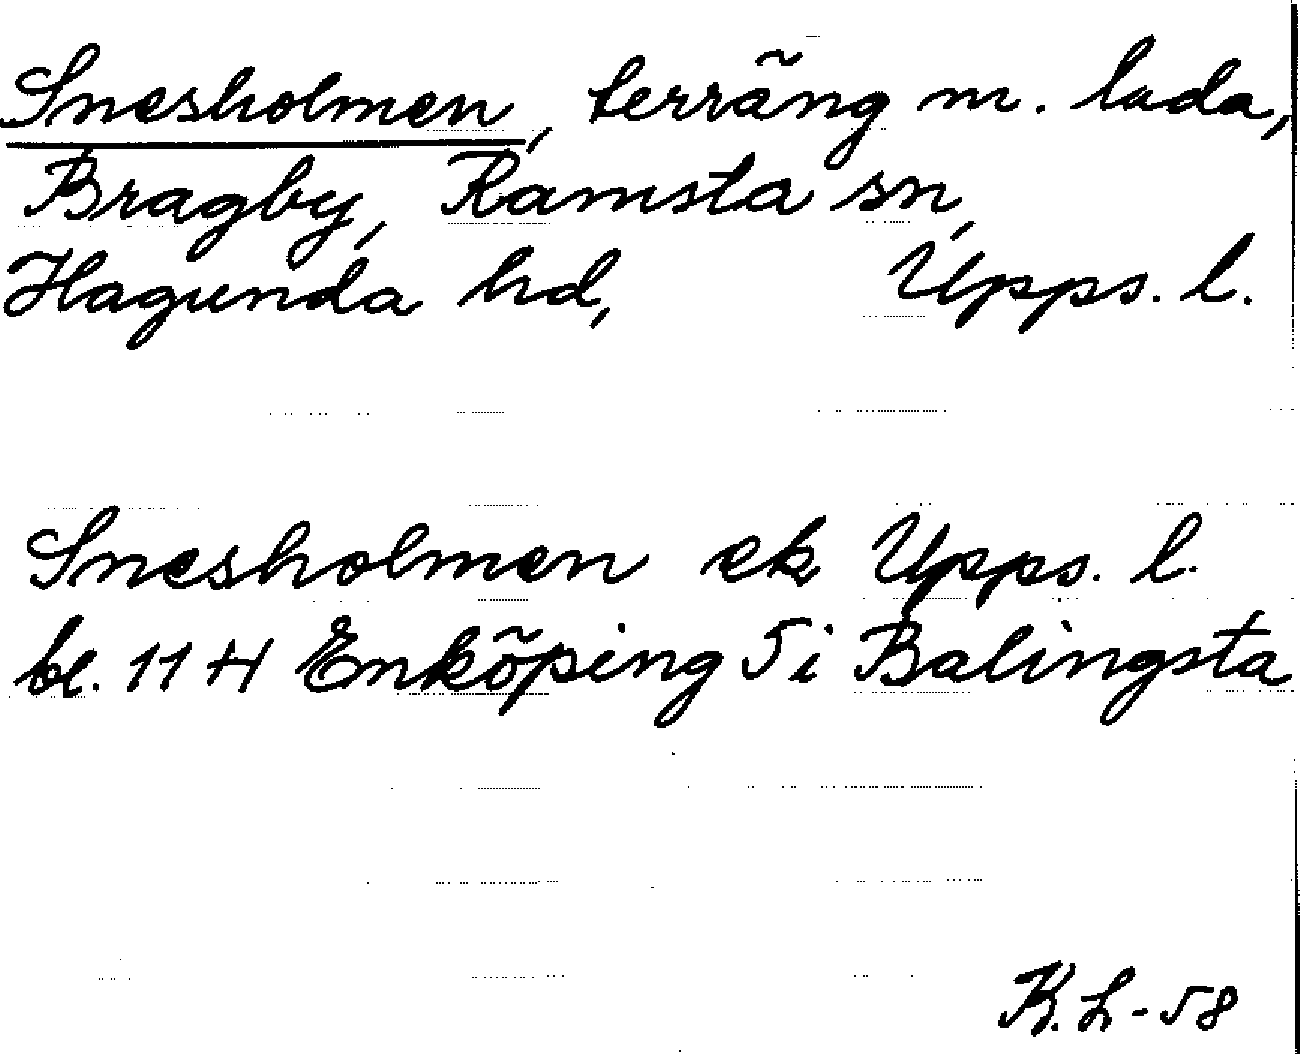 Snesholmen, terräng m. lada,
Bragby, Ramsta sn,
Hagunda hd, Upps. l.
Snesholmen ek Upps. l.
bl. 11 H Enköping 5i Balingsta
K. L-58